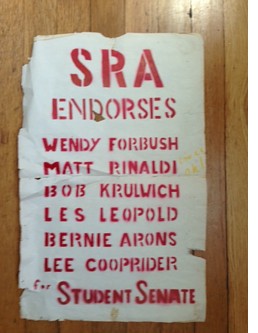 SRA
ENDORSES
WENDY FORBUSH
MATT RINALDI
BOB KRULWICH
LES LEOPOLD
BERNIE ARONS
LEE COOPRIDER
for STUDENT SENATE